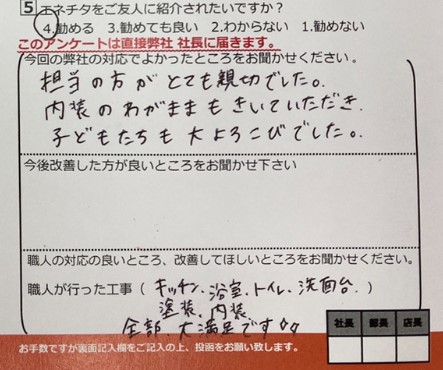 5 エネチタをご友人に紹介されたいですか？
4.勧める 3.勧めても良い 2.わからない 1.勧めない
このアンケートは直接弊社 社長に届きます。
今回の弊社の対応でよかったところをお聞かせください。
担当の方がとても親切でした。
内装のわがままもきいていただき、
子どもたちも大よろこびでした。
今後改善した方が良いところをお聞かせ下さい
職人の対応の良いところ、改善してほしいところをお聞かせください。
職人が行った工事（キッチン、浴室、トイレ、洗面台、）
塗装、内装
全部、大満足です
社長 部長 店長
お手数ですが裏面記入欄をご記入の上、投函をお願い致します。